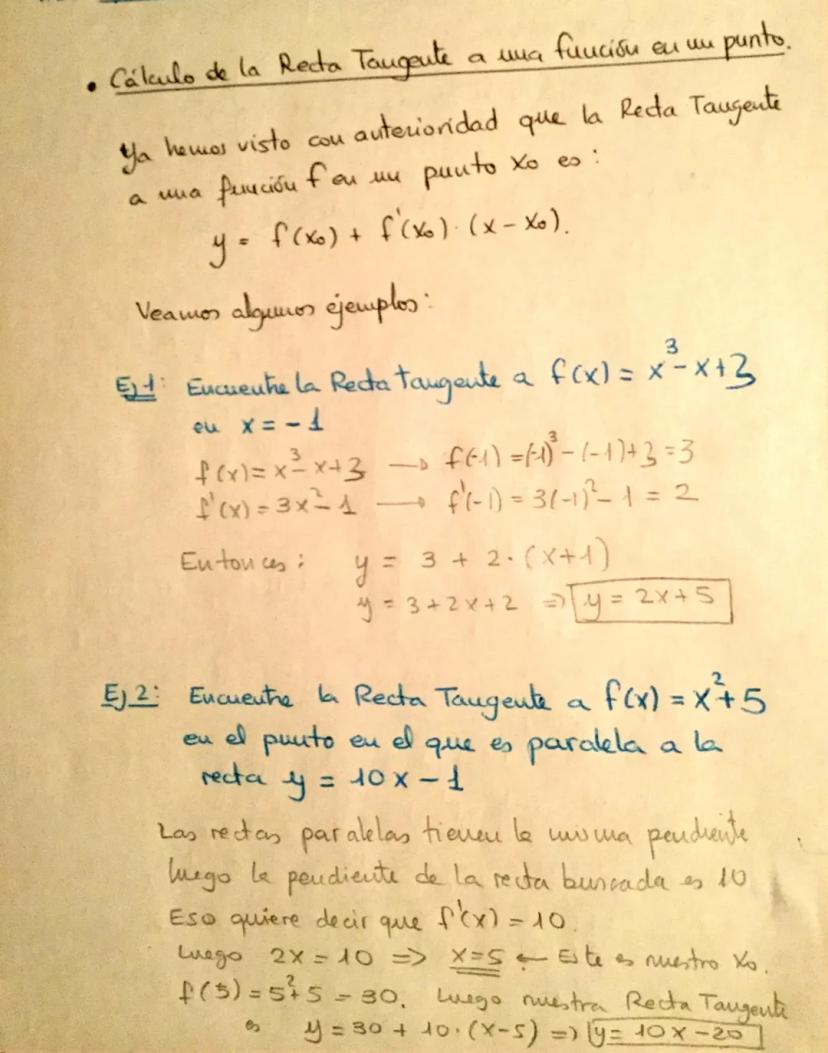 • Cálculo de la Recta Tangente a una función en un punto.
Ya hemos visto con anterioridad que la Recta Tangente
a una función f en un punto x₀ es:
y = f(x₀) + f'(x₀) · (x - x₀).
Veamos algunos ejemplos:
Ej 1: Encuentre la Recta tangente a f(x) = x³ - x + 3
en x = -1
f(x) = x³ - x + 3 → f(-1) = (-1)³ - (-1) + 3 = 3
f'(x) = 3x² - 1 → f'(-1) = 3(-1)² - 1 = 2
Entonces: y = 3 + 2 · (x+1)
y = 3 + 2x + 2 => y = 2x + 5
Ej 2: Encuentre la Recta Tangente a f(x) = x² + 5
en el punto en el que es paralela a la
recta y = 10x - 1
Las rectas paralelas tienen la misma pendiente
luego la pendiente de la recta buscada es 10
Eso quiere decir que f'(x) = 10.
Luego 2x = 10 => x = 5 ← Este es nuestro x₀.
f(5) = 5² + 5 = 30. Luego nuestra Recta Tangente
es y = 30 + 10 · (x - 5) => y = 10x - 20